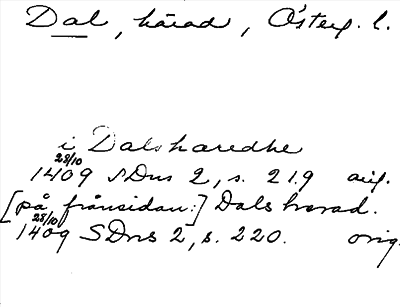 Dal, härad, Österg. l.
i Dalsharedhe
28/10
1409 SDns 2, s. 219 orig.
[på frånsidan:] Dals hærad.
28/10
1409 SDns 2, s. 220. orig.